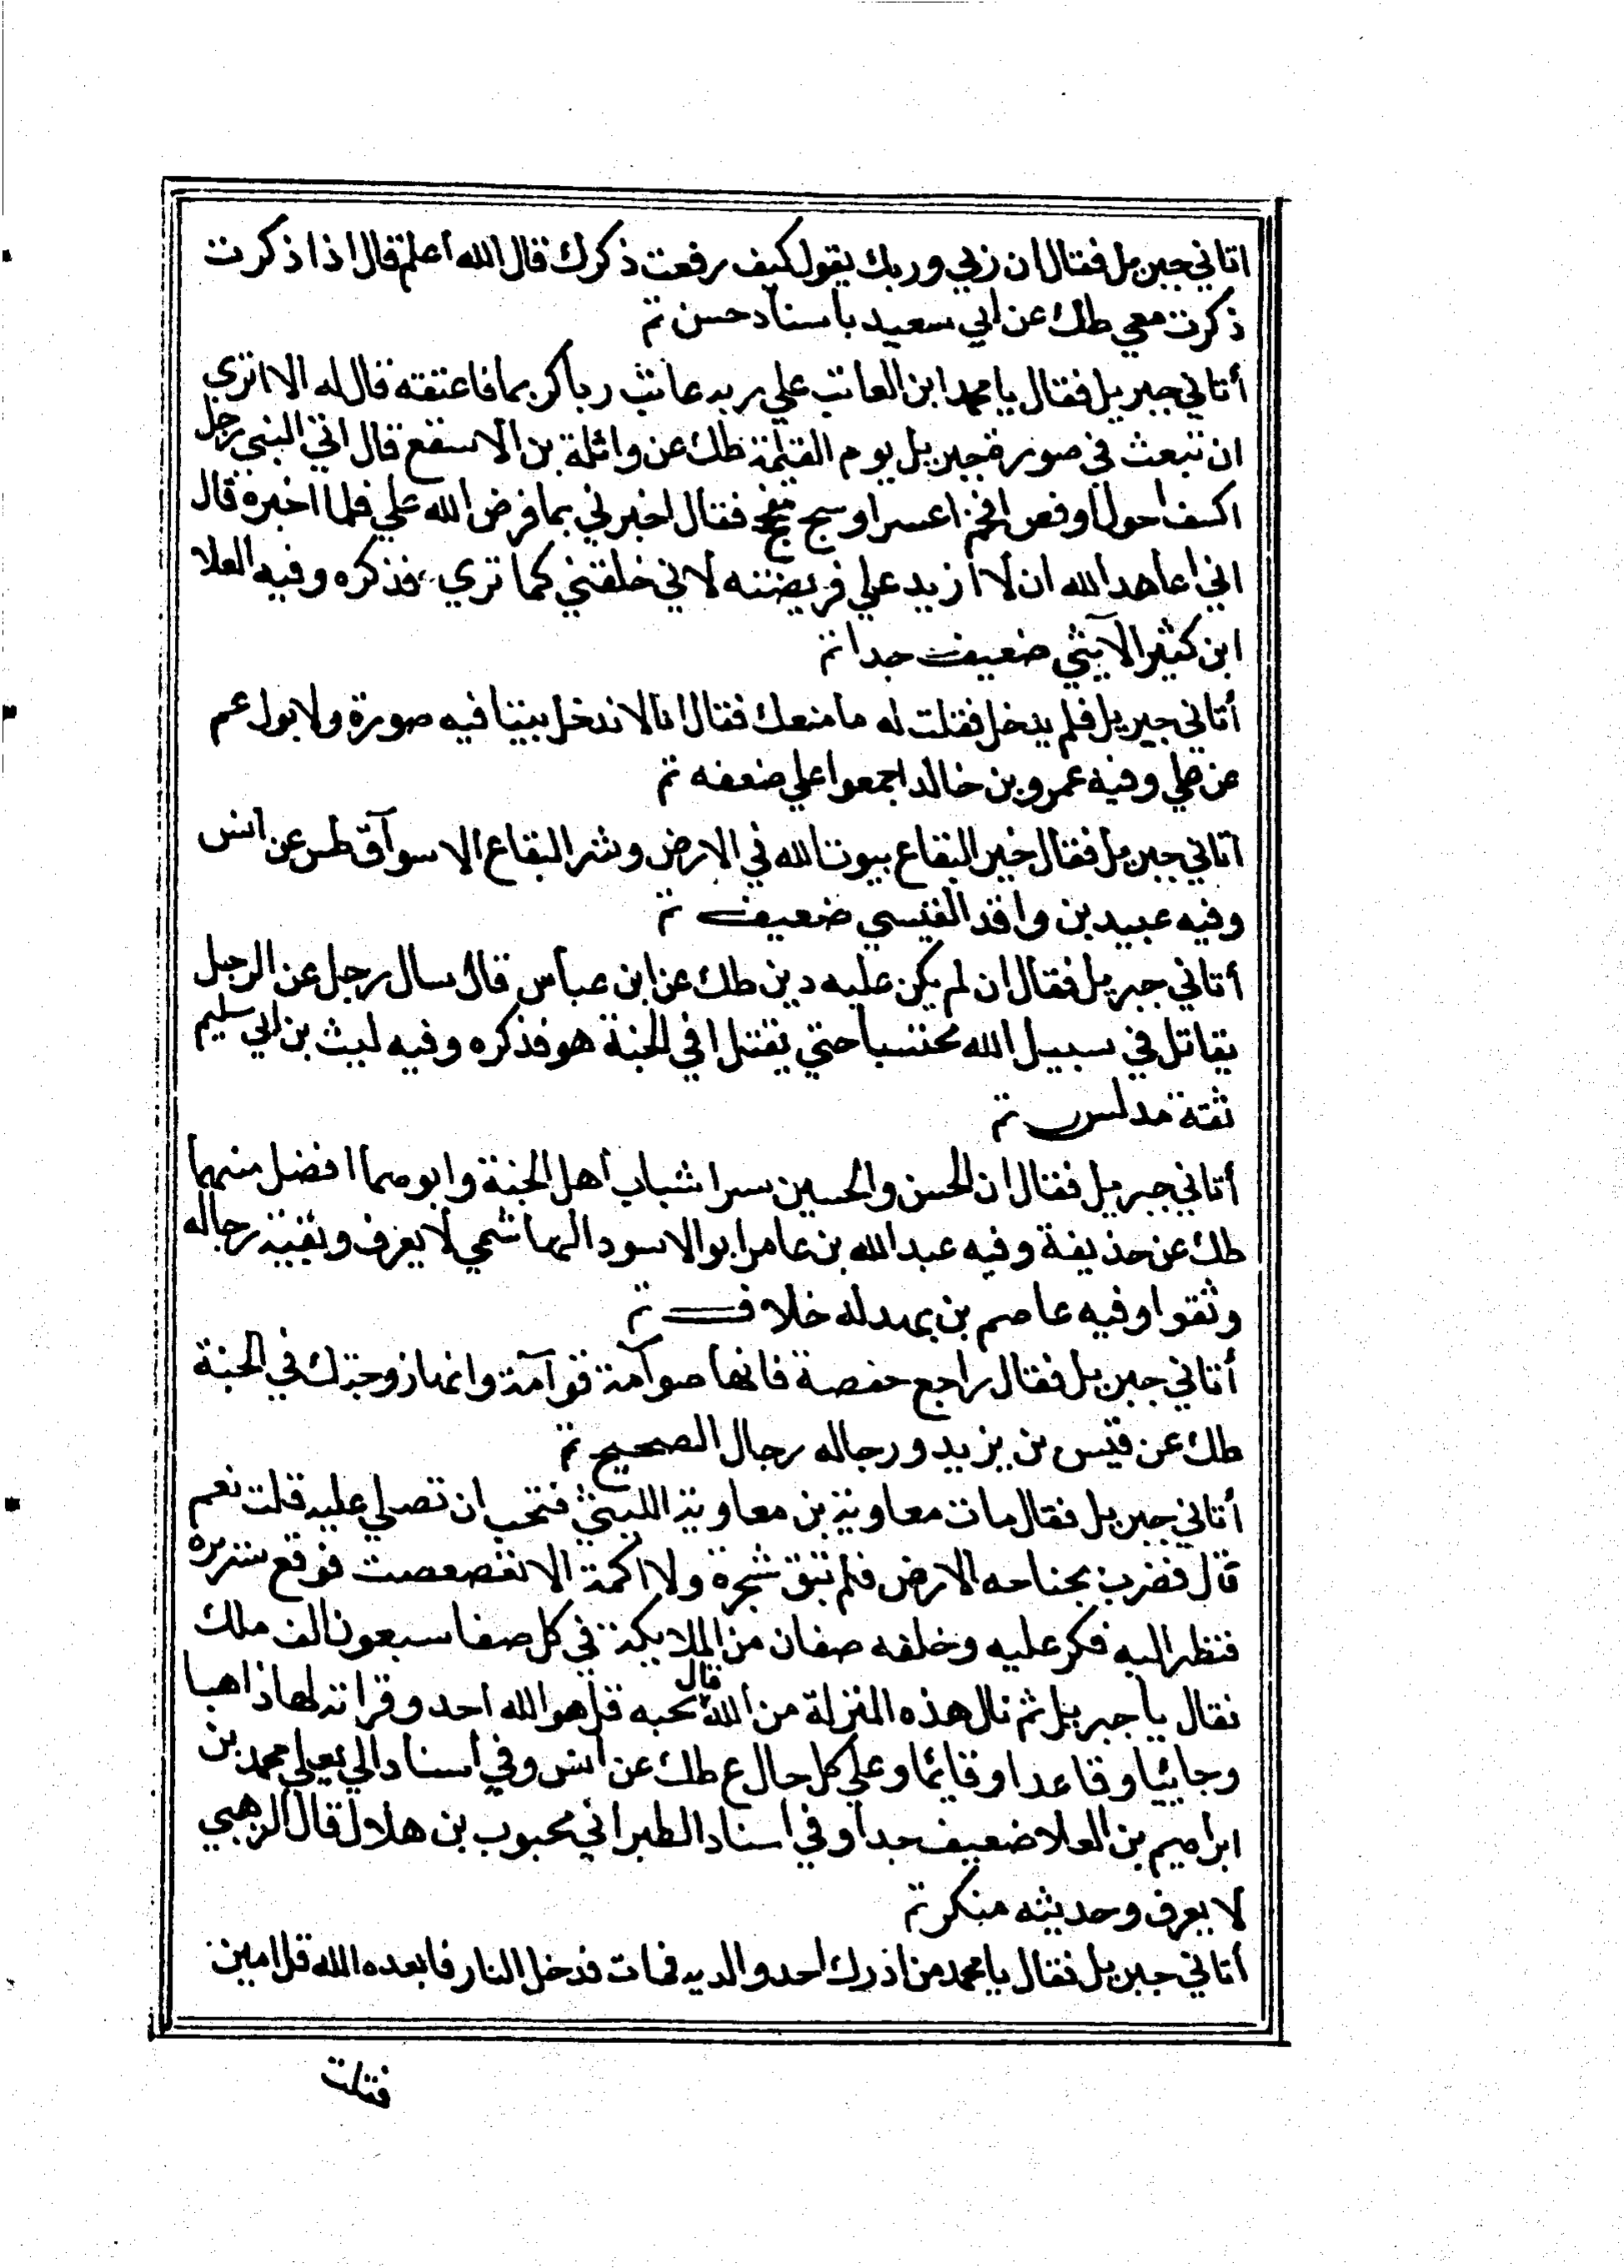 اتاني جبريل فقال ان ربي وربك يقول كيف رفعت ذكرك قال الله اعلم قال اذا ذكرت
ذكرت معي طك عن ابي سعيد باسناد حسن تم
أتاني جبريل فقال يا محمد ابن العاتب علي ربه عاتب ربا كريما فاعتقته قال له الا اترى
ان تبعث في صورة جبريل يوم القيمة طك عن واثلة بن الاسقع قال اتى النبي رجل
اكسف احول اوقص اعسر ارسح فحج فقال اخبرني بما فرض الله علي فلما اخبره قال
اني اعاهد الله ان لا أزيد علي فريضته لاني خلقتني كما تري فذكره وفيه العلا
ابن كثير ضعيف جدا تم
أتاني جبريل فلم يدخل فقلت له ما منعك فقال انا لا ندخل بيتا فيه صورة ولا بول عم
عن علي وفيه عمرو بن خالد اجمعوا علي ضعفه تم
اتاني جبريل فقال خير البقاع بيوت الله في الارض وشر البقاع الاسوآق طس عن انس
وفيه عبيد بن واقد القيسي ضعيف تم
أتاني جبريل فقال ان لم يكن عليه دين طك عن ابن عباس قال سال رجل عن الرجل
يقاتل في سبيل الله محتسبا حتي يقتل افي الجنة هو فذكره وفيه ليث بن ابي سليم
ثقة مدلس تم
أتاني جبريل فقال ان الحسن والحسين سيدا شباب أهل الجنة وابوهما افضل منهما
طك عن حذيفة وفيه عبد الله بن عامر ابو الاسود الهاشمي لا يعرف وبقية رجاله
وثقوا وفيه عاصم بن بهدله خلاف تم
أتاني جبريل فقال راجع حفصة فانها صوآمة قوآمة وانها زوجتك في الجنة
طك عن قيس بن يزيد ورجاله رجال الصحيح تم
أتاني جبريل فقال مات معاوية بن معاوية الليثي فتحب ان تصلي عليه قلت نعم
قال فضرب بجناحه الارض فلم تبق شجرة ولا اكمة الا تقصعصت فوقع سريره
فنظر اليه فكبر عليه وخلفه صفان من الملايكة في كل صف سبعون الف ملك
فقال يا جبريل ثم نال هذه المنزلة من الله قال بحبه قل هو الله احد وقراته لها ذاهبا
وجائيا وقاعدا وقائما وعلي كل حال ع طك عن انس وفي اسناد ابي يعلي محمد بن
ابراهيم بن العلا ضعيف جدا وفي اسناد الطبراني محبوب بن هلال قال الذهبي
لا يعرف وحديثه منكر تم
أتاني جبريل فقال يا محمد من ادرك احد والديه فمات فدخل النار فابعده الله قل امين
فقلت